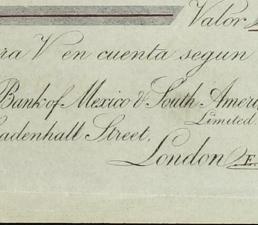 Valor
ra V en cuenta segun
Bank of Mexico & South Amer
Limited
adenhall Street,
London E.